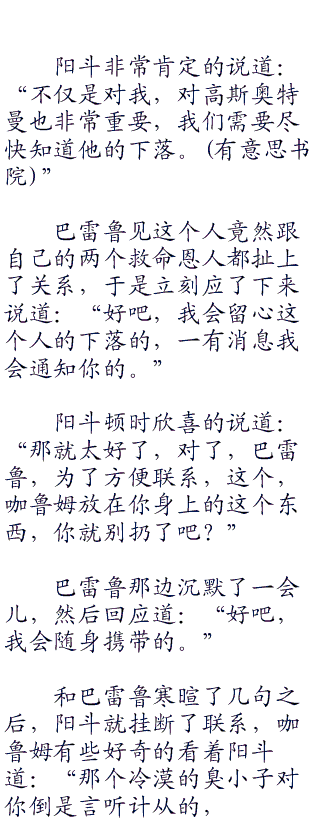 阳斗非常肯定的说道：
“不仅是对我，对高斯奥特
曼也非常重要，我们需要尽
快知道他的下落。(有意思书
院)”
巴雷鲁见这个人竟然跟
自己的两个救命恩人都扯上
了关系，于是立刻应了下来
说道：“好吧，我会留心这
个人的下落的，一有消息我
会通知你的。”
阳斗顿时欣喜的说道：
“那就太好了，对了，巴雷
鲁，为了方便联系，这个，
咖鲁姆放在你身上的这个东
西，你就别扔了吧？”
巴雷鲁那边沉默了一会
儿，然后回应道：“好吧，
我会随身携带的。”
和巴雷鲁寒暄了几句之
后，阳斗就挂断了联系，咖
鲁姆有些好奇的看着阳斗
道：“那个冷漠的臭小子对
你倒是言听计从的，